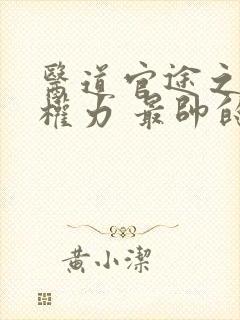 醫道官途之
權力 最帥的
黃小潔